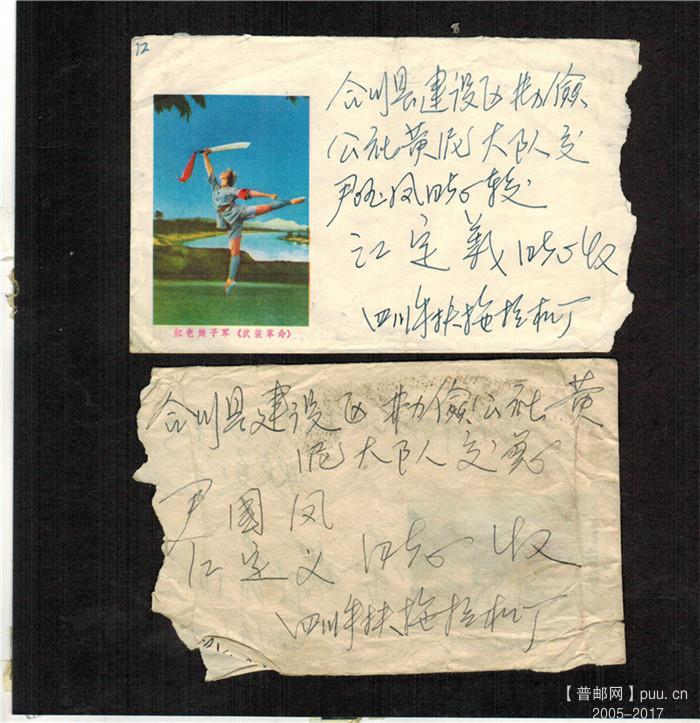 12
合川县建设区勤俭
公社黄泥大队交
尹国凤同志转
江定义同志收
四川手扶拖拉机厂
红色娘子军《武装革命》
合川县建设区勤俭公社黄
泥大队交
尹国凤
江定义 同志收
四川手扶拖拉机厂
【普邮网】puu.cn
2005-2017